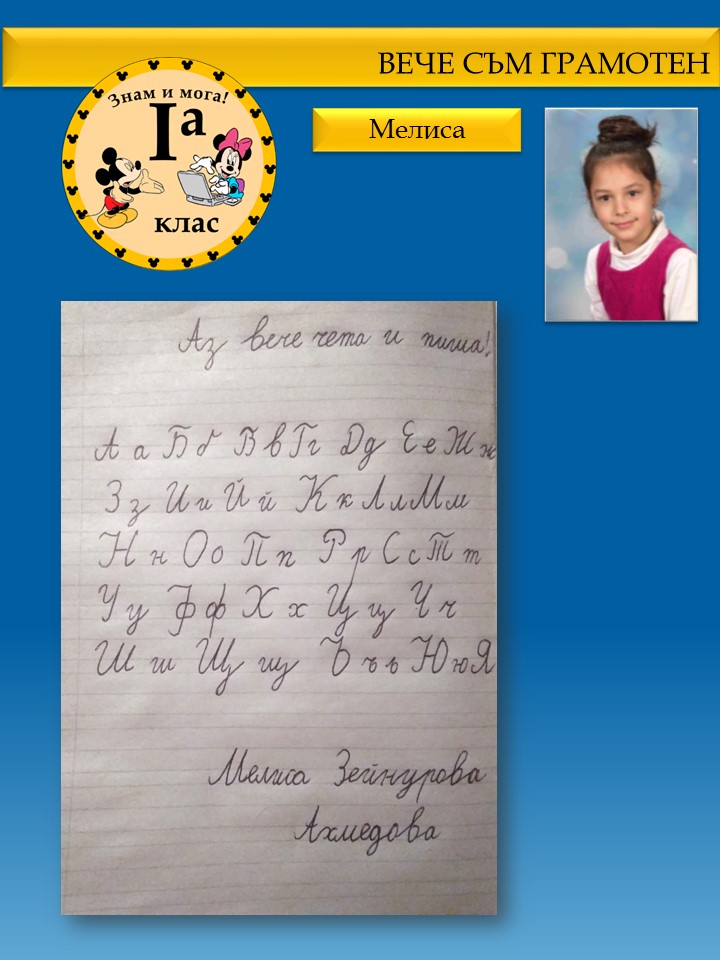 ВЕЧЕ СЪМ ГРАМОТЕН
Знам и мога!
Iа
клас
Мелиса
Аз вече чета и пиша!
А а Б б В в Г г Д д Е е Ж ж
З з И и Й й К к Л л М м
Н н О о П п Р р С с Т т
У у Ф ф Х х Ц ц Ч ч
Ш ш Щ щ Ъ ъ ь Ю ю Я
Мелиса Зейнурова
Ахмедова